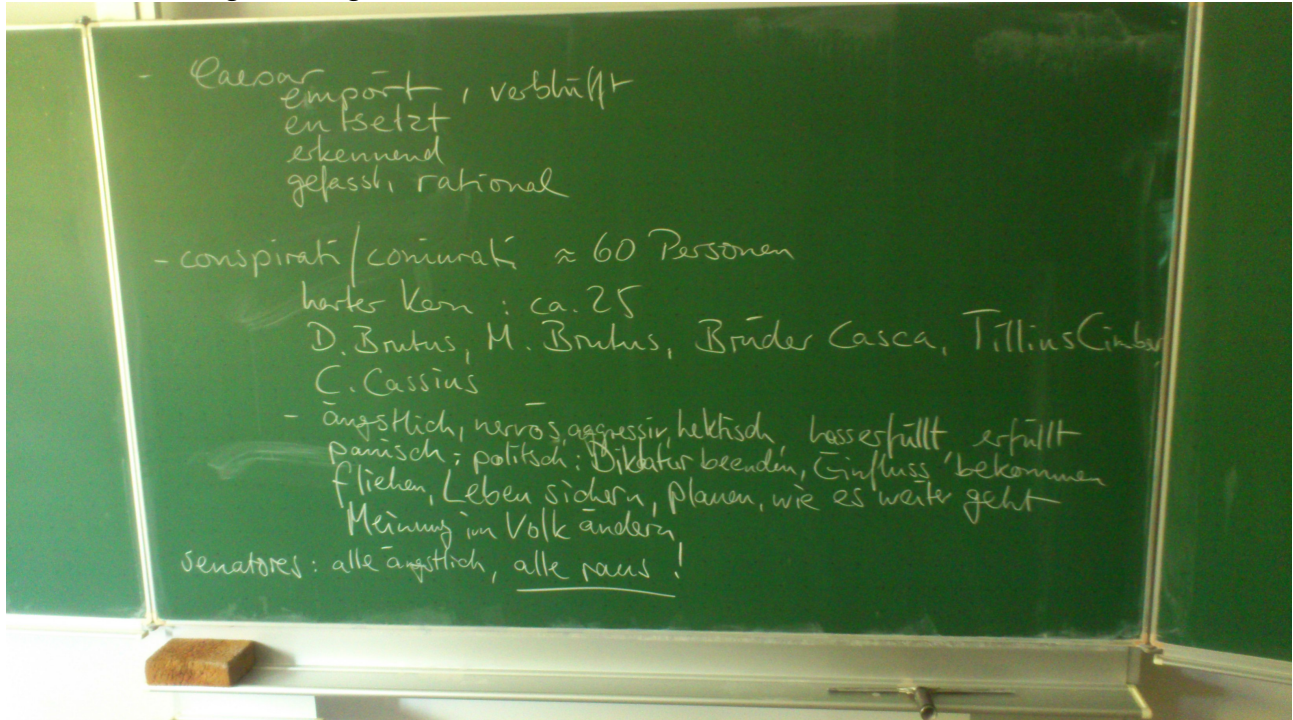 - Caesar
empört, verblüfft
entsetzt
erkennend
gefasst, rational
- conspirati/coniurati ≈ 60 Personen
harter Kern : ca. 25
D. Brutus, M. Brutus, Brüder Casca, Tillius Cimber,
C. Cassius
- ängstlich, nervös, aggressiv, hektisch, hasserfüllt, erfüllt
panisch; politsch: Diktatur beenden, Einfluss bekommen
fliehen, Leben sichern, planen, wie es weiter geht
Meinung im Volk ändern
senatores: alle ängstlich, alle raus!